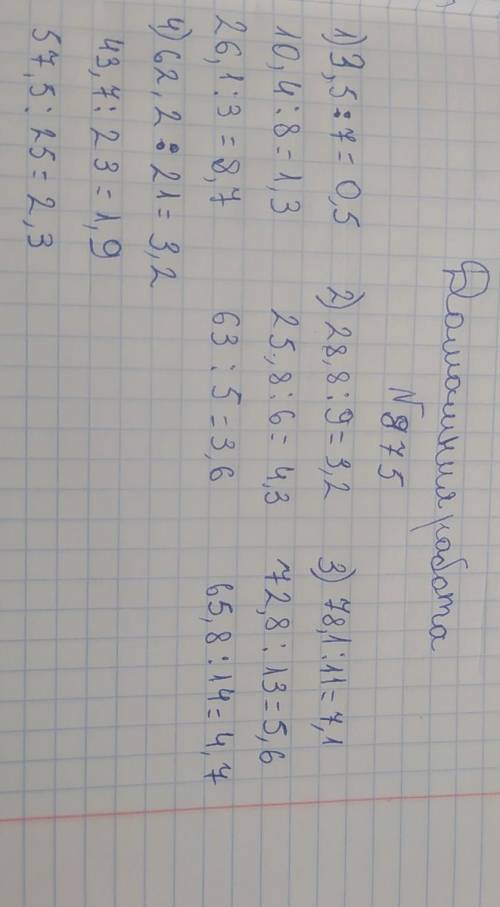 Домашняя работа
N 875
1) 3,5 : 7 = 0,5 2) 28,8 : 9 = 3,2 3) 78,1 : 11 = 7,1
10,4 : 8 = 1,3 25,8 : 6 = 4,3 72,8 : 13 = 5,6
26,1 : 3 = 8,7 63 : 5 = 3,6 65,8 : 14 = 4,7
4) 62,2 : 21 = 3,2
43,7 : 23 = 1,9
57,5 : 25 = 2,3